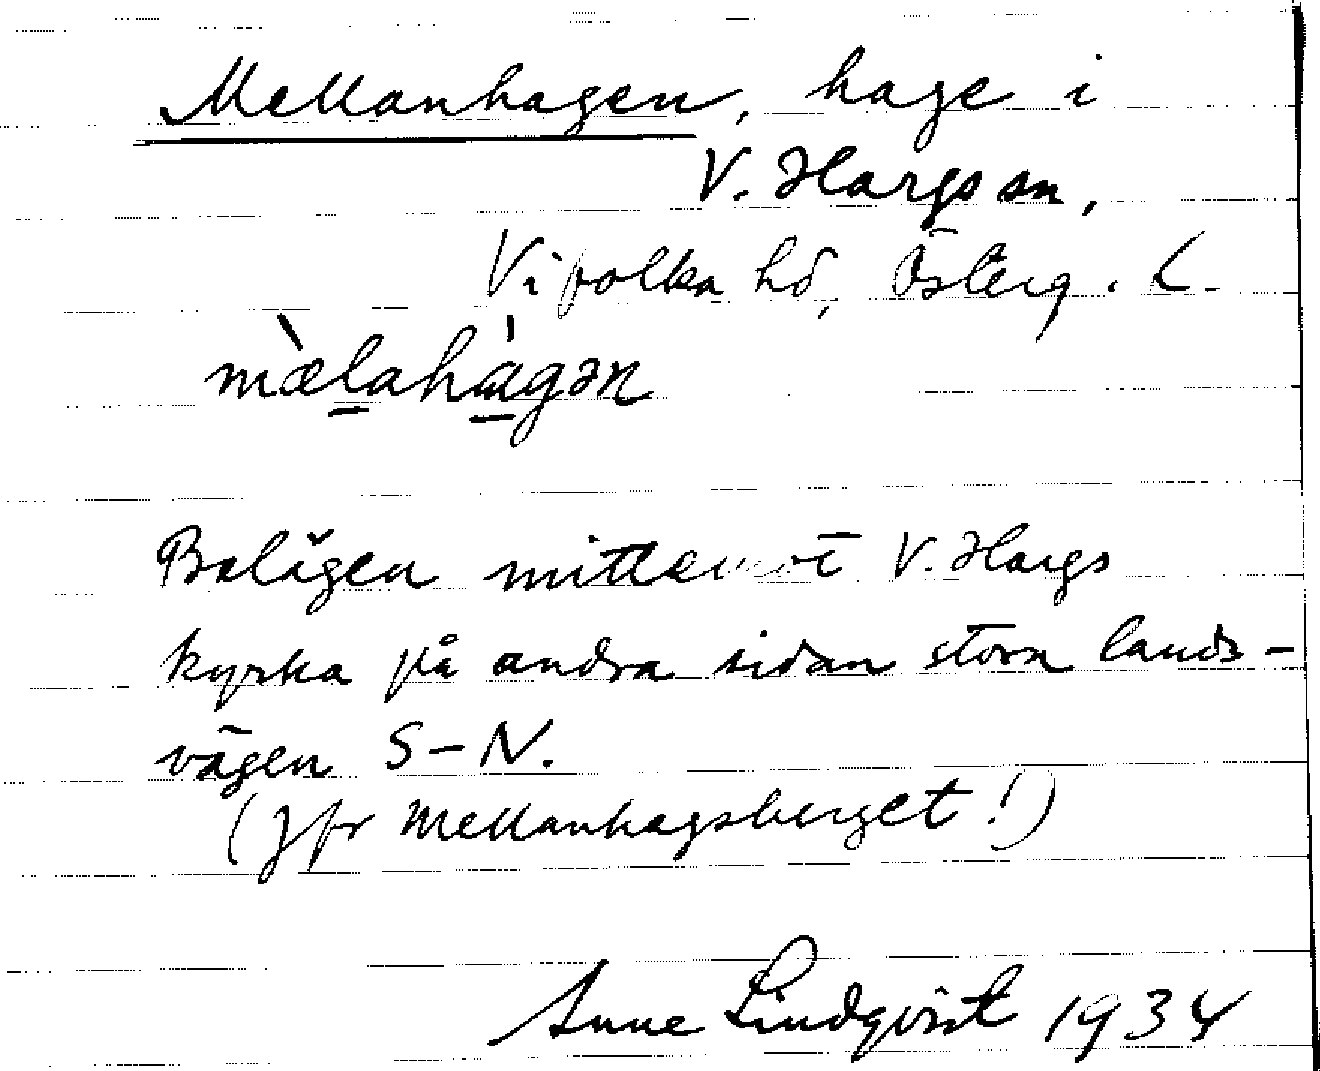 Mellanhagen, hage i
V. Hargs sn,
Vifolka hd, Österg. L.
mæ̀l̠ahà̠gən
Belägen mittemot V. Hargs
kyrka på andra sidan stora lands-
vägen S-N.
(Jfr Mellanhagsberget!)
Anne Lindqvist 1934